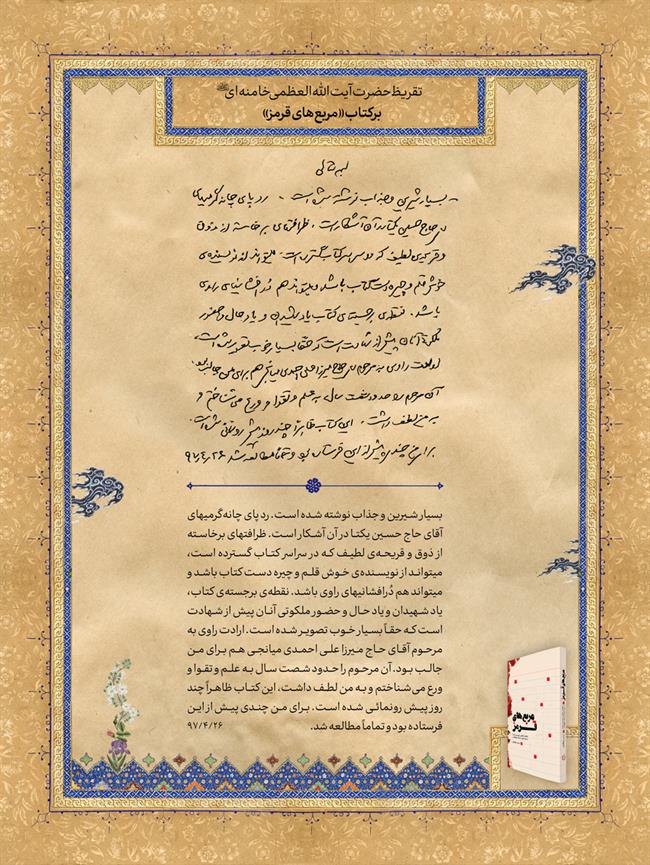 تقریظ حضرت آیت الله العظمی خامنه ای
بر کتاب «مربع‌های قرمز»
بسمه تعالی
- بسیار شیرین و جذاب نوشته شده است. رد پای چانه گرمیهای
آقای حاج حسین یکتا در آن آشکار است. ظرافتهای برخاسته از ذوق
و قریحه‌ی لطیف که در سراسر کتاب گسترده است، میتواند از نویسنده‌ی
خوش قلم و چیره دست کتاب باشد و میتواند هم دُرافشانیهای راوی
باشد. نقطه‌ی برجسته‌ی کتاب یاد شهیدان و یاد حال و حضور
ملکوتی آنان پیش از شهادت است که حقاً بسیار خوب تصویر شده است.
ارادت راوی به مرحوم آقای حاج میرزا علی احمدی میانجی هم برای من جالب بود.
آن مرحوم را حدود شصت سال به علم و تقوا و ورع می‌شناختم و
به من لطف داشت. این کتاب ظاهراً چند روز پیش رونمائی شده است.
برای من چندی پیش از این فرستاده بود و تماماً مطالعه شد. ۹۷/۴/۲۶
بسیار شیرین و جذاب نوشته شده است. رد پای چانه گرمیهای
آقای حاج حسین یکتا در آن آشکار است. ظرافتهای برخاسته
از ذوق و قریحه‌ی لطیف که در سراسر کتاب گسترده است،
میتواند از نویسنده‌ی خوش قلم و چیره دست کتاب باشد و
میتواند هم دُرافشانیهای راوی باشد. نقطه‌ی برجسته‌ی کتاب،
یاد شهیدان و یاد حال و حضور ملکوتی آنان پیش از شهادت
است که حقاً بسیار خوب تصویر شده است. ارادت راوی به
مرحوم آقای حاج میرزا علی احمدی میانجی هم برای من
جالب بود. آن مرحوم را حدود شصت سال به علم و تقوا و
ورع می شناختم و به من لطف داشت، این کتاب ظاهراً چند
روز پیش رونمائی شده است. برای من چندی پیش از این
فرستاده بود و تماماً مطالعه شد. ۹۷/۴/۲۶
مربع‌های
قرمز